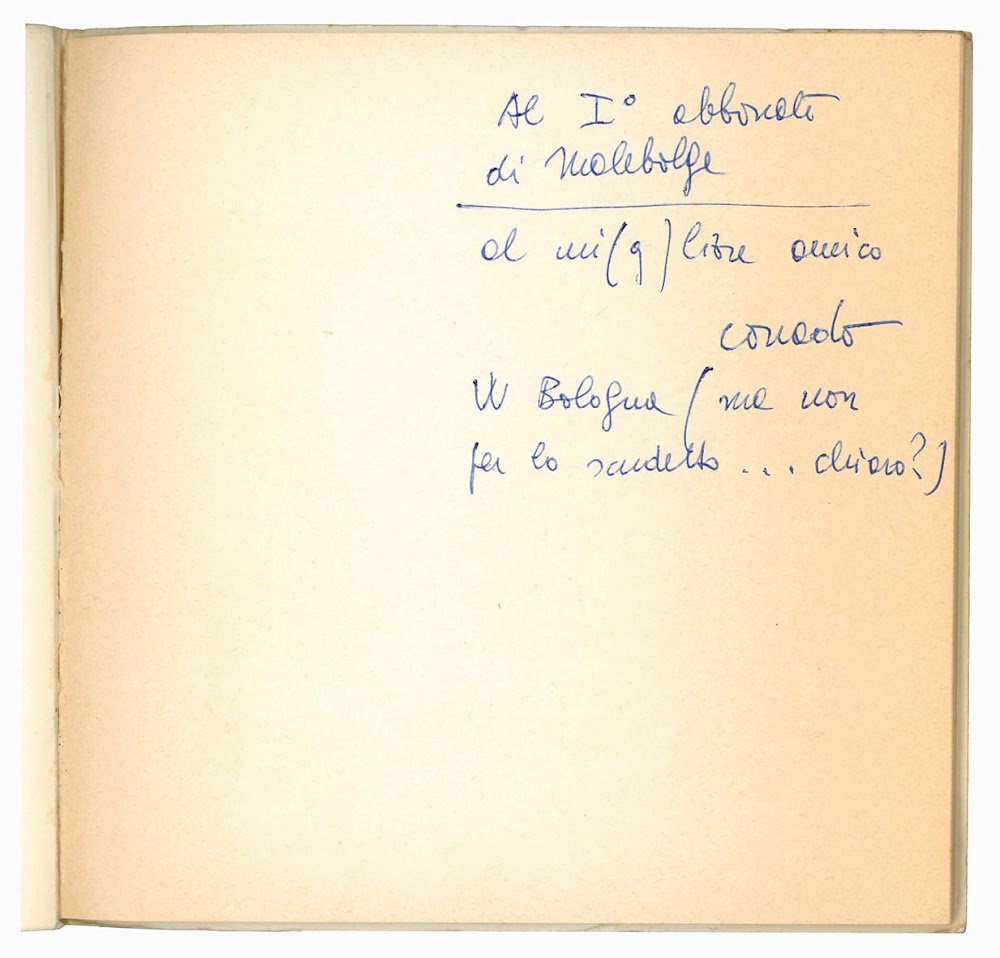 Al I° abbonato
di Malebolge
al mi(g)liore amico
corrado
W Bologna (ma non
per lo scudetto ... chiaro?)